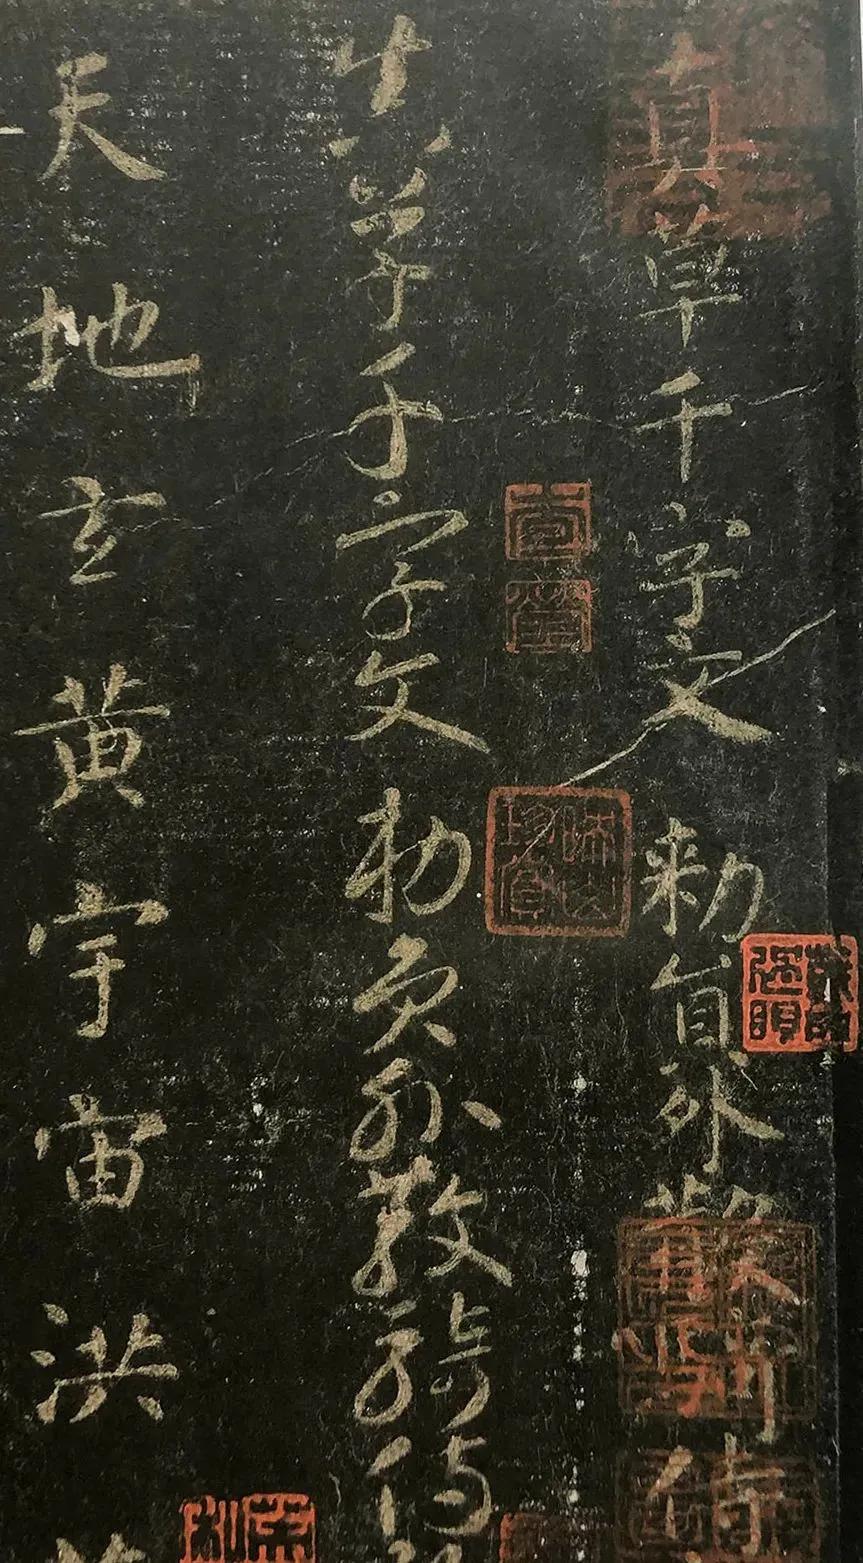 真草千字文勅員外散騎侍
真草千字文勅員外散騎侍
天地玄黃宇宙洪